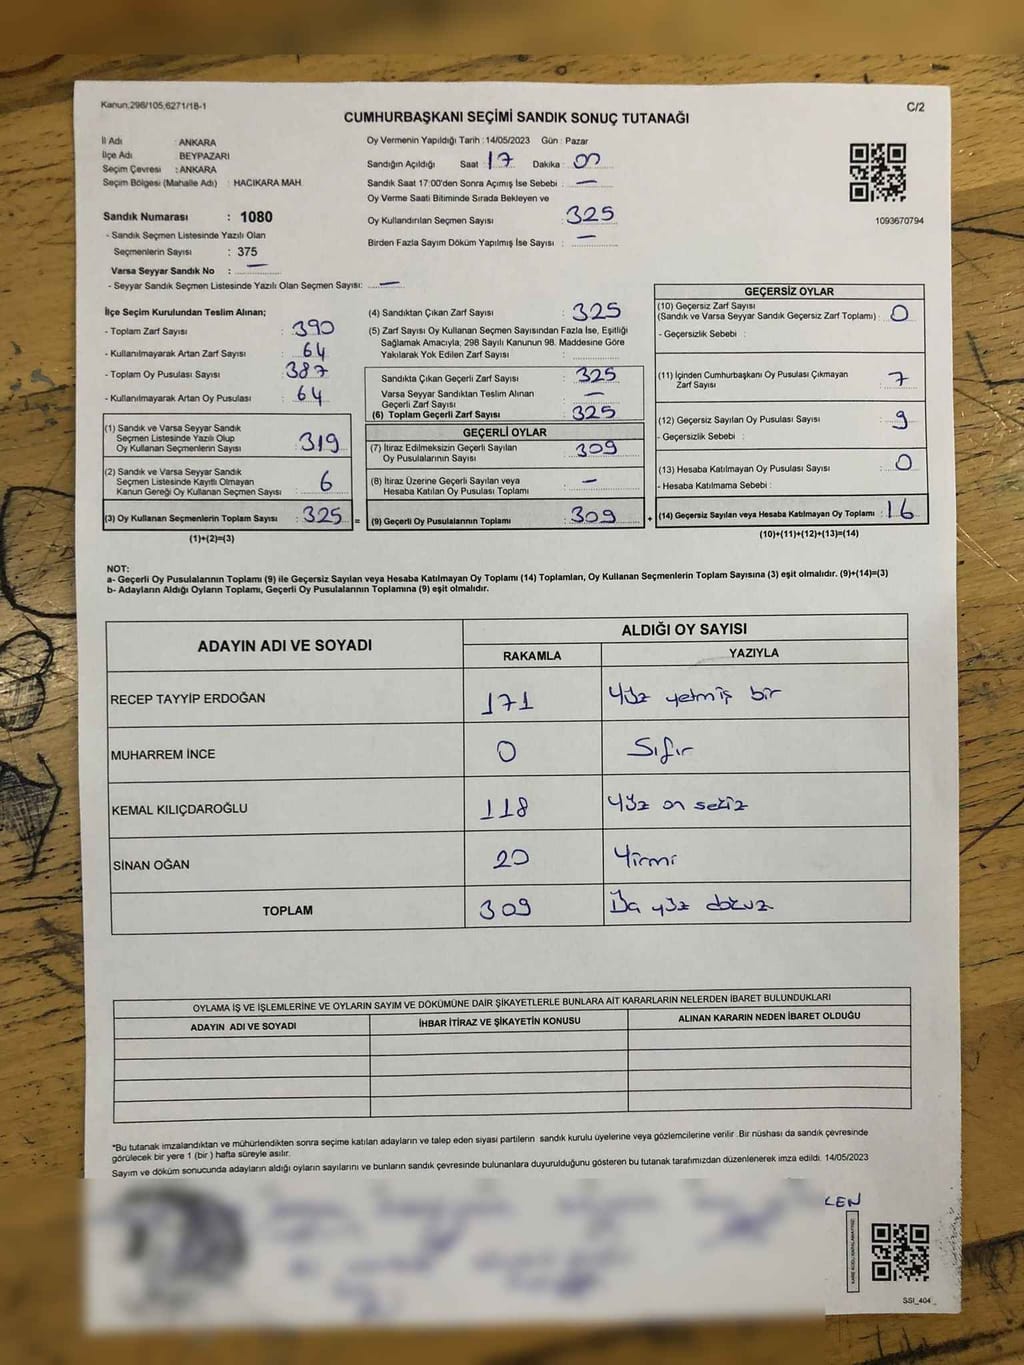 Kanun,298/105,6271/18-1
C/2
CUMHURBAŞKANI SEÇİMİ SANDIK SONUÇ TUTANAĞI
İl Adı : ANKARA
İlçe Adı : BEYPAZARI
Seçim Çevresi : ANKARA
Seçim Bölgesi (Mahalle Adı) : HACIKARA MAH.
Sandık Numarası : 1080
- Sandık Seçmen Listesinde Yazılı Olan
Seçmenlerin Sayısı : 375
Varsa Seyyar Sandık No : —
- Seyyar Sandık Seçmen Listesinde Yazılı Olan Seçmen Sayısı: —
Oy Vermenin Yapıldığı Tarih : 14/05/2023 Gün : Pazar
Sandığın Açıldığı Saat : 17 Dakika : 00
Sandık Saat 17:00'den Sonra Açımış İse Sebebi : —
Oy Verme Saati Bitiminde Sırada Bekleyen ve
Oy Kullandırılan Seçmen Sayısı : 325
Birden Fazla Sayım Döküm Yapılmış İse Sayısı : —
1093670794
İlçe Seçim Kurulundan Teslim Alınan;
- Toplam Zarf Sayısı : 390
- Kullanılmayarak Artan Zarf Sayısı : 64
- Toplam Oy Pusulası Sayısı : 387
- Kullanılmayarak Artan Oy Pusulası : 64
(1) Sandık ve Varsa Seyyar Sandık
Seçmen Listesinde Yazılı Olup
Oy Kullanan Seçmenlerin Sayısı : 319
(2) Sandık ve Varsa Seyyar Sandık
Seçmen Listesinde Kayıtlı Olmayan
Kanun Gereği Oy Kullanan Seçmen Sayısı : 6
(3) Oy Kullanan Seçmenlerin Toplam Sayısı : 325
(1)+(2)=(3)
(4) Sandıktan Çıkan Zarf Sayısı : 325
(5) Zarf Sayısı Oy Kullanan Seçmen Sayısından Fazla İse, Eşitliği
Sağlamak Amacıyla; 298 Sayılı Kanunun 98. Maddesine Göre
Yakılarak Yok Edilen Zarf Sayısı :
Sandıkta Çıkan Geçerli Zarf Sayısı : 325
Varsa Seyyar Sandıktan Teslim Alınan
Geçerli Zarf Sayısı : —
(6) Toplam Geçerli Zarf Sayısı : 325
GEÇERLİ OYLAR
(7) İtiraz Edilmeksizin Geçerli Sayılan
Oy Pusulalarının Sayısı : 309
(8) İtiraz Üzerine Geçerli Sayılan veya
Hesaba Katılan Oy Pusulası Toplamı : —
= (9) Geçerli Oy Pusulalarının Toplamı : 309
GEÇERSİZ OYLAR
(10) Geçersiz Zarf Sayısı
(Sandık ve Varsa Seyyar Sandık Geçersiz Zarf Toplamı) : 0
- Geçersizlik Sebebi :
(11) İçinden Cumhurbaşkanı Oy Pusulası Çıkmayan
Zarf Sayısı : 7
(12) Geçersiz Sayılan Oy Pusulası Sayısı : 9
- Geçersizlik Sebebi :
(13) Hesaba Katılmayan Oy Pusulası Sayısı : 0
- Hesaba Katılmama Sebebi :
+ (14) Geçersiz Sayılan veya Hesaba Katılmayan Oy Toplamı : 16
(10)+(11)+(12)+(13)=(14)
NOT:
a- Geçerli Oy Pusulalarının Toplamı (9) ile Geçersiz Sayılan veya Hesaba Katılmayan Oy Toplamı (14) Toplamları, Oy Kullanan Seçmenlerin Toplam Sayısına (3) eşit olmalıdır. (9)+(14)=(3)
b- Adayların Aldığı Oyların Toplamı, Geçerli Oy Pusulalarının Toplamına (9) eşit olmalıdır.
ADAYIN ADI VE SOYADI ALDIĞI OY SAYISI
RAKAMLA YAZIYLA
RECEP TAYYİP ERDOĞAN 171 Yüz yetmiş bir
MUHARREM İNCE 0 Sıfır
KEMAL KILIÇDAROĞLU 118 Yüz on sekiz
SİNAN OĞAN 20 Yirmi
TOPLAM 309 yüz dokuz
OYLAMA İŞ VE İŞLEMLERİNE VE OYLARIN SAYIM VE DÖKÜMÜNE DAİR ŞİKAYETLERLE BUNLARA AİT KARARLARIN NELERDEN İBARET BULUNDUKLARI
ADAYIN ADI VE SOYADI İHBAR İTİRAZ VE ŞİKAYETİN KONUSU ALINAN KARARIN NEDEN İBARET OLDUĞU
*Bu tutanak imzalandıktan ve mühürlendikten sonra seçime katılan adayların ve talep eden siyasi partilerin sandık kurulu üyelerine veya gözlemcilerine verilir .Bir nüshası da sandık çevresinde
görülecek bir yere 1 (bir ) hafta süreyle asılır.
Sayım ve döküm sonucunda adayların aldığı oyların sayılarını ve bunların sandık çevresinde bulunanlara duyurulduğunu gösteren bu tutanak tarafımızdan düzenlenerek imza edildi. 14/05/2023
LEN
SSI_404